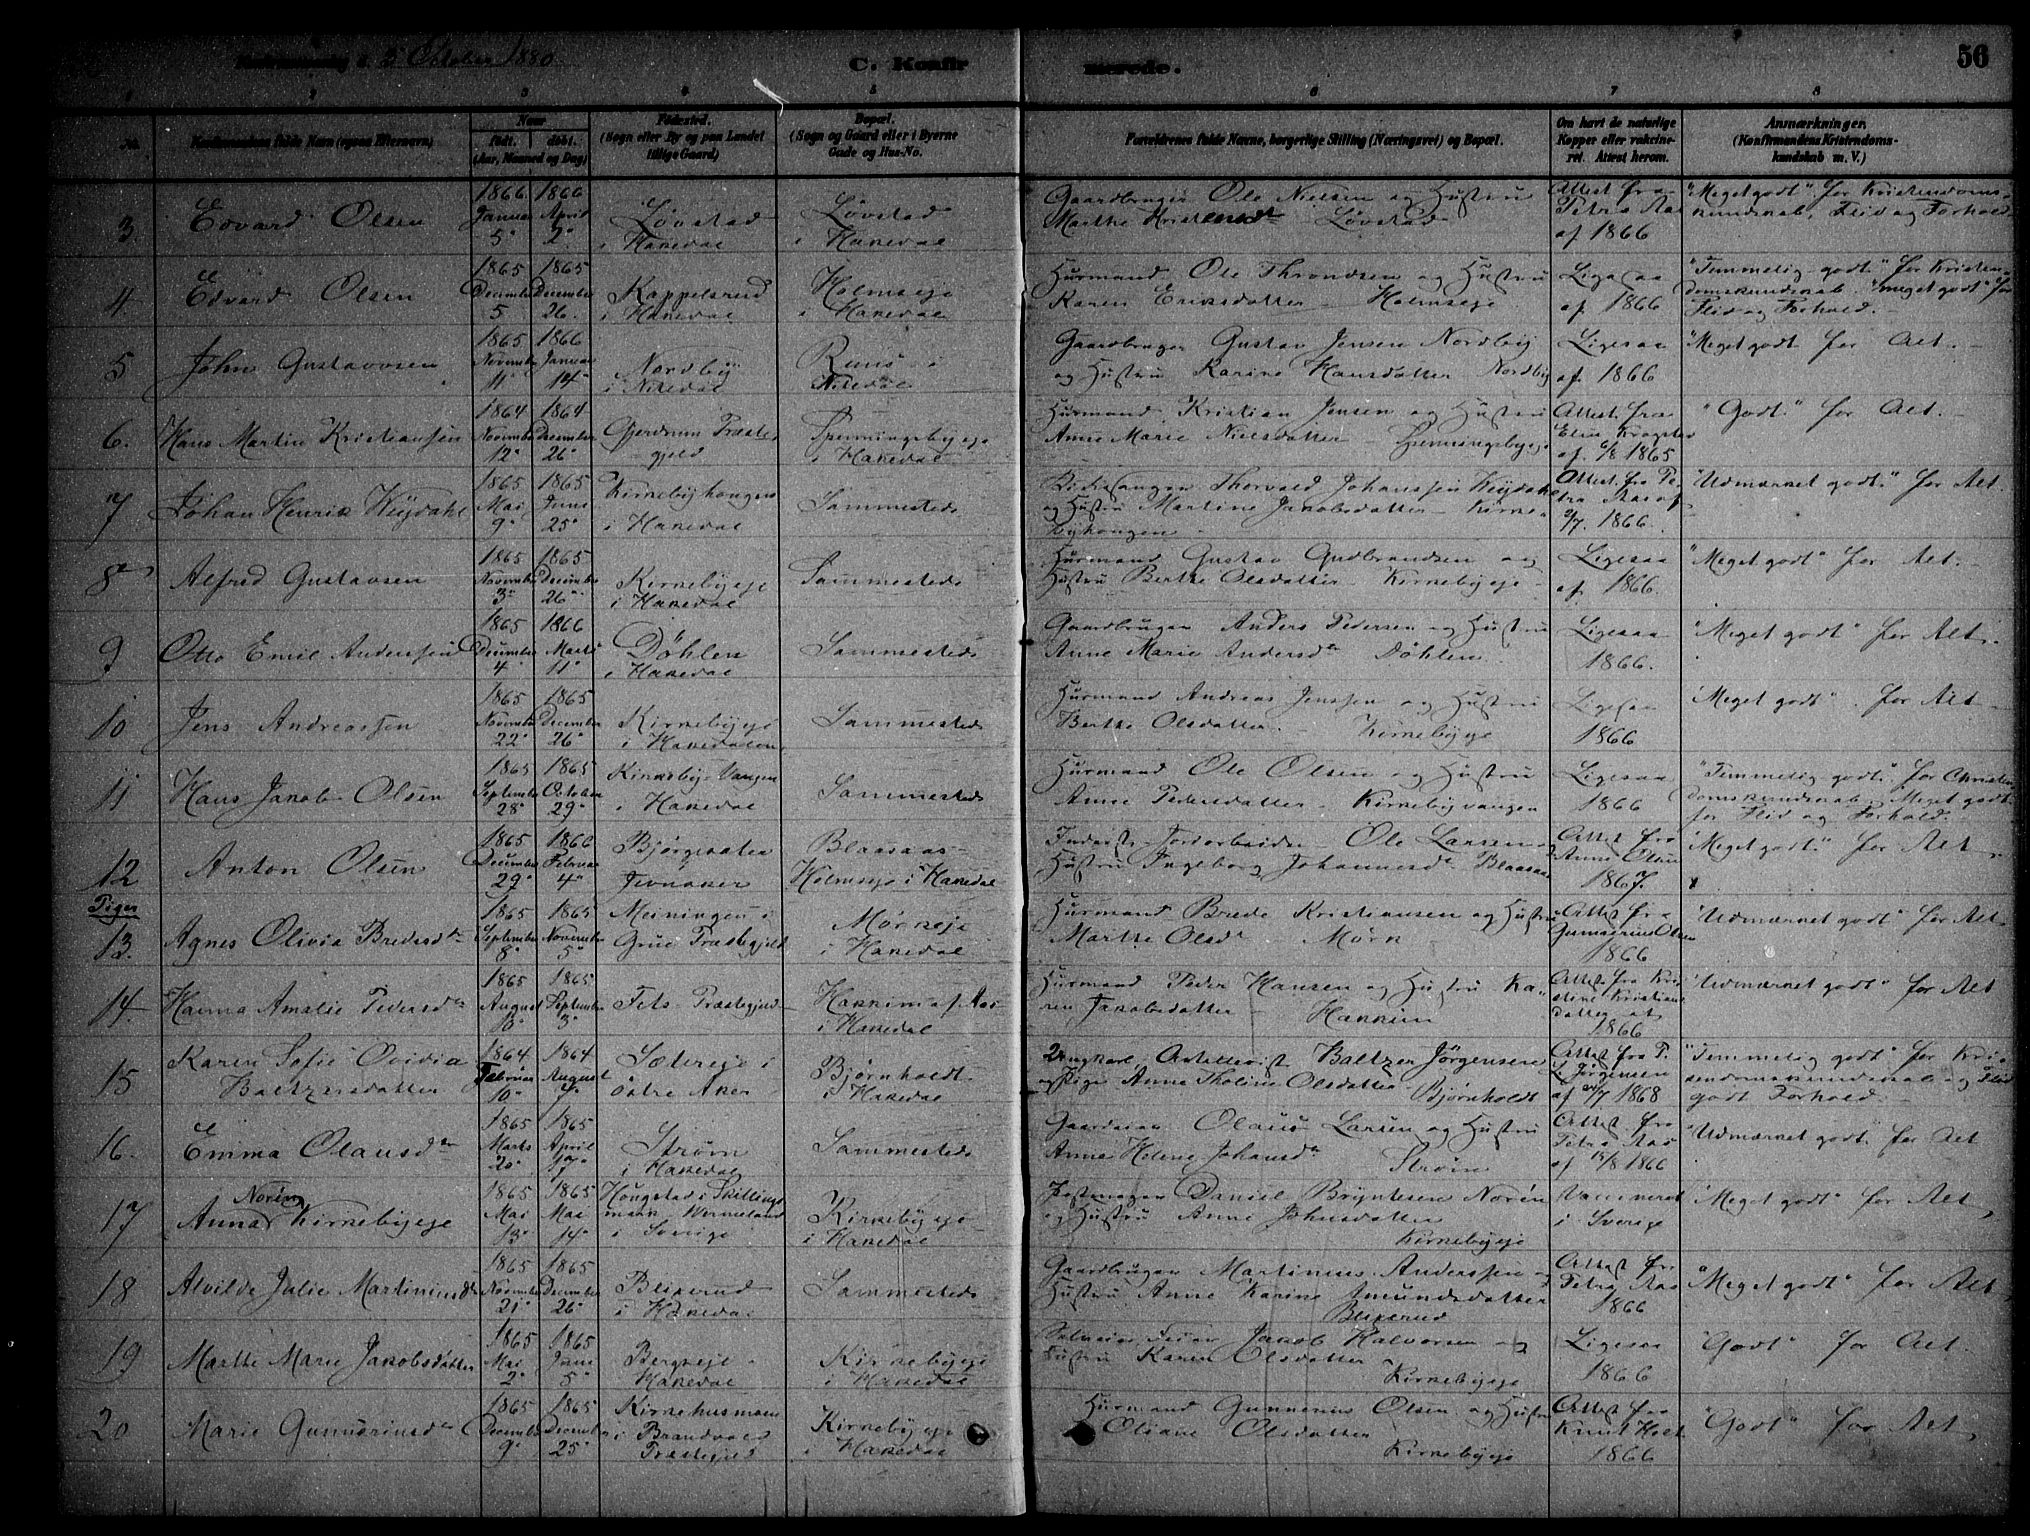 Konfirmerede d. 3 October 1880
C. Konfirmerede.
56
1 2 3 4 5 6 7 8
No.
Konfirmandens fulde Navn (ogsaa Efternavn).
Naar
født. døbt.
(Aar, Maaned og Dag)
Fødested.
(Sogn eller By og paa Landet
tillige Gaard)
Bopæl.
(Sogn og Gaard eller i Byerne
Gade og Hus-No.
Forældrenes fulde Navne, borgerlige Stilling (Næringsvei) og Bopæl.
Om havt de naturlige
Kopper eller vakcine-
ret. Attest herom.
Anmærkninger
(Konfirmandens Kristendoms-
kundskab m. V.)
3. Edvard Olsen
1866 Januar 5
1866 April 2
Løvstad
i Hakedal
Løvstad
i Hakedal
Gaardbruger Ole Nielsen og Hustru
Marthe Kristensdt Løvstad
Attest fra
Petra Aas
af 1866
"Meget godt" for Kristendoms-
kundskab, Flid og Forhold
4 Edvard Olsen
1865 December 5
1865 December 26.
Kappelsrud
i Hakedal
Holmseje
i Hakedal
Husmand Ole Throndsen og Hustru
Karen Eriksdatter Holmseje
Ligesaa
af 1866
"Temmelig godt" for Kristen-
domskundskab. "meget godt" for
Flid og Forhold.
5 John Gustavsen
1865 November 11
1866 Januar 14
Nordby
i Nitedal
Nitedal
Gaardbruger Gustav Jensen Nordby
og Hustru Karine Hansdatter Nordby
Ligesaa
af 1866
"Meget godt" for Alt.
6. Hans Martin Kristiansen
1864 November 12
1864 December 26
Gjerdrum Præste-
gjeld
Spenningsbyeje
i Hakedal
Husmand Kristian Jensen og Hustru
Anne Marie Nielsdatter Spenningsbyeje
Attest fra
Elise Krogstad
af 6/8 1865
"Godt" for Alt.
7 Johan Henrik Heydahl
1865 Mai 9
1865 Juni 25
Kirkebyhougen
i Hakedal
Sammesteds
Kirkesanger Thorvald Johanssen Heydahl
og Hustru Martine Jakobsdatter Kirke-
byhougen
Attest fra Pe-
tra Aas af
2/7. 1866.
"Udmærket godt" for Alt.
8 Alfred Gustavsen
1865 November 3
1865 December 26
Kirkebyeje
i Hakedal
Sammesteds
Husmand Gustav Gudbrandsen og
Hustru Berthe Olsdatter Kirkebyeje
Ligesaa
af 1866.
"Meget godt" for Alt.
9 Otto Emil Anderssen
1865 December 4
1866 Marts 11
Døhlen
i Hakedal
Sammesteds
Gaardbruger Anders Pedersen og Hustru
Anne Marie Andersdt Døhlen
Ligesaa
1866.
"Meget godt" for Alt.
10 Jens Andreassen
1865 November 22
1865 December 26
Kirkebyeje
i Hakedalen
Sammesteds
Husmand Andreas Jenssen og Hustru
Berthe Olsdatter Kirkebyeje
Ligesaa
1866
"Meget godt" for Alt
11 Hans Jakob Olsen
1865 September 28
1865 October 29
Kirkeby-Vangen
i Hakedal
Sammesteds
Husmand Ole Olsen og Hustru
Anne Pedersdatter Kirkebyvangen
Ligesaa
1866
"Temmelig godt" for Christen
domskundskab. Meget godt
for Flid og Forhold.
12 Anton Olsen
1865 December 29
1866 Februar 4
Jevnaker
Blaasaas-
Holmseje i Hakedal
Inderst Jordarbeider Ole Larsen og
Hustru Ingeborg Johannesdt Blaasaas
Attest fra
Anne Olsen
1867.
"Meget godt" for Alt
Piger
13. Agnes Olivia Bredesdtr
1865 September 8
1865 November 5
Meiningen i
Grue Præstegjeld
Mørkeje
i Hakedal
Husmand Brede Kristiansen og Hustru
Marthe Olsdt Mørk
Attest fra
Gunnerius Olsen
1866
"Udmærket godt" for Alt
14 Hanna Amalie Pedersdtr
1865 August 10
1865 September 3
Fets Præstegjeld
i Hakedal
Husmand Peder Hansen og Hustru Ka-
ren Jakobsdatter Hakkim
Attest fra Kri-
stine Kristians
datter af
1866
"Udmærket godt" for Alt
15 Karen Sofie Ovidia
Baltzersdatter
1864 Februar 10
1864 August
Sætereje i
Østre Aker
Bjørnholdt
i Hakedal
Ungkarl Baltzer Jørgensen
og Pige Anne Tholine Olsdatter
Bjørnholdt
Attest fra
Jørgensen
af 1868
"Temmelig godt" for Kri-
stendomskundskab og Flid
godt Forhold.
16. Emma Olausdtr
1865 Marts 20
1865 April 17
Strøm
i Hakedal
Sammesteds
Gaardeier Olaus Larsen og Hustru
Anne Helene Johansdtr Strøm
Attest fra
Petra Aas
af 15/8 1866
"Udmærket godt" for Alt
17 Anna Norén Kirkebyeje
1865 Mai 13
1865 Mai 14
Hougstad i Skillings
mark Wermeland
i Sverige
Kirkebyeje
i Hakedal
Daniel Bryntesen Norén
og Hustru Anne Johnsdatter
Kirkebyeje
Vaccineret
i Sverige
"Meget godt" for Alt
18 Alvilde Julie Martiniusdtr
1865 November 21
1865 December 26
Blekerud
i Hakedal
Sammesteds
Gaardbruger Martinius Anderssen og
Hustru Anne Karine Amundsdatter
Blekerud
Attest fra
Petra Aas
1866
"Meget godt" for Alt
19 Marthe Marie Jakobsdatter
1865 Mai 2
1865 Juni 5
Bergseje
Hakedal
Kirkebyeje
i Hakedal
Jakob Halvorsen og
Hustru Karen Olsdatter
Kirkebyeje
Ligesaa
1866
"Godt" for Alt.
20 Marie Gunneriusdtr
1865 December 9
1865 December 25
i Brandvold
Præstegjeld
Kirkebyeje
i Hakedal
Husmand Gunnerius Olsen og Hustru
Oliane Olsdatter
Kirkebyeje
Attest fra
Knut Holt
1866
"Godt" for Alt